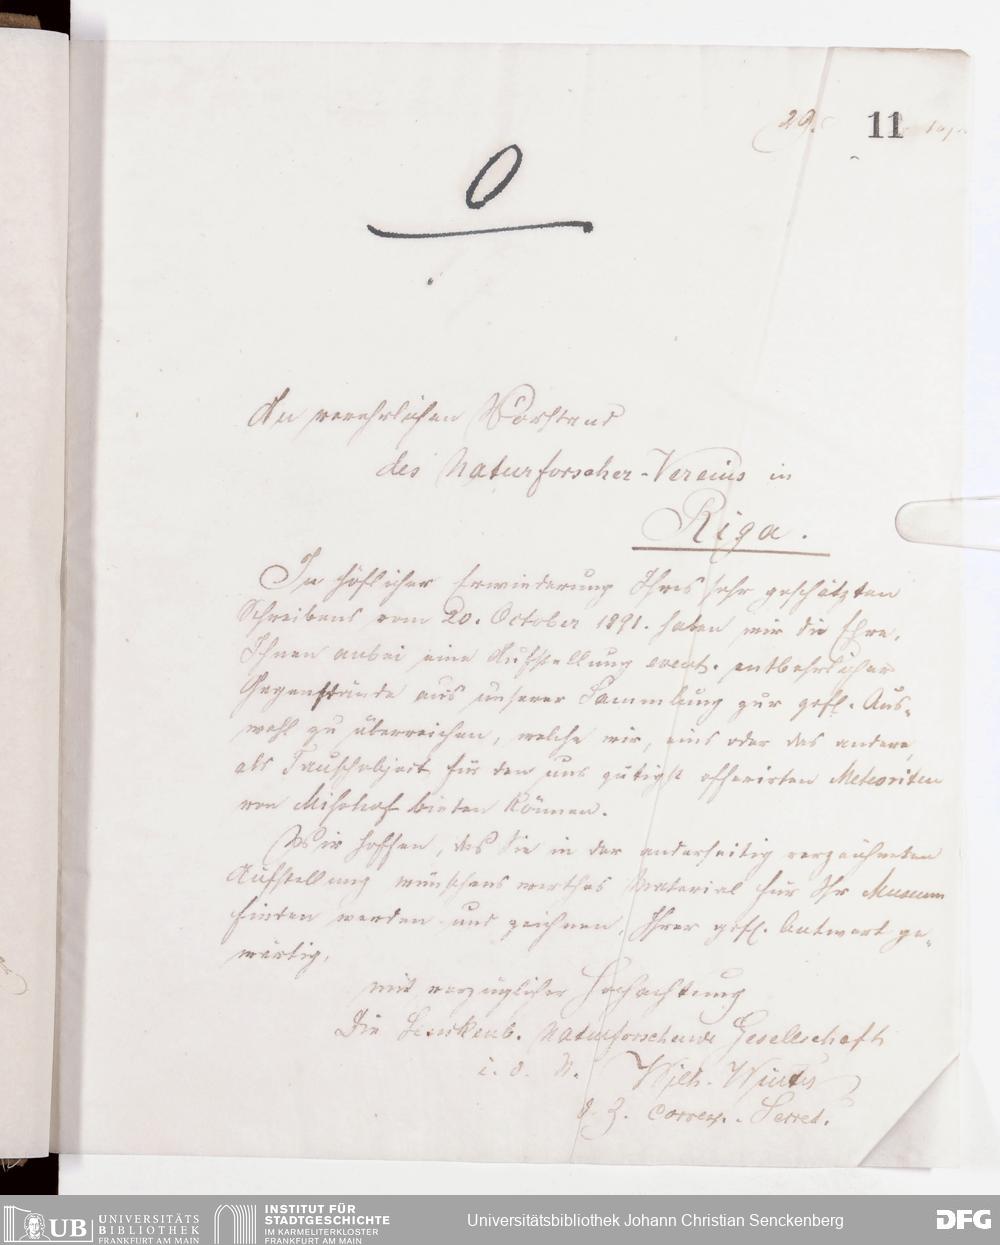 29.
11
0
An verehrlichen Vorstand
des Naturforscher-Vereins in
Riga.
In höflicher Erwiederung Ihres sehr geschätzten
Schreibens vom 20. October 1891. haben wir die Ehre,
Ihnen anbei eine Aufstellung event. entbehrlicher
Gegenstände aus unserer Sammlung zur gefl. Aus-
wahl zu überreichen, welche wir, eins oder das andere,
als Tauschobject für den uns gütigst offerirten Meteoriten
von Misshof bieten können.
Wir hoffen, das Sie in der anderseitig verzeichneten
Aufstellung wünschenswerthes Material für Ihr Museum
finden werden und zeichnen, Ihrer gefl. Antwort ge-
wärtig,
mit vorzüglicher Hochachtung
Die Senckenb. Naturforschende Gesellschaft
i. d. N. Wilh. Winter
d. Z. corresp. Secret.
UB UNIVERSITÄTS
BIBLIOTHEK
FRANKFURT AM MAIN
INSTITUT FÜR
STADTGESCHICHTE
IM KARMELITERKLOSTER
FRANKFURT AM MAIN
Universitätsbibliothek Johann Christian Senckenberg
DFG